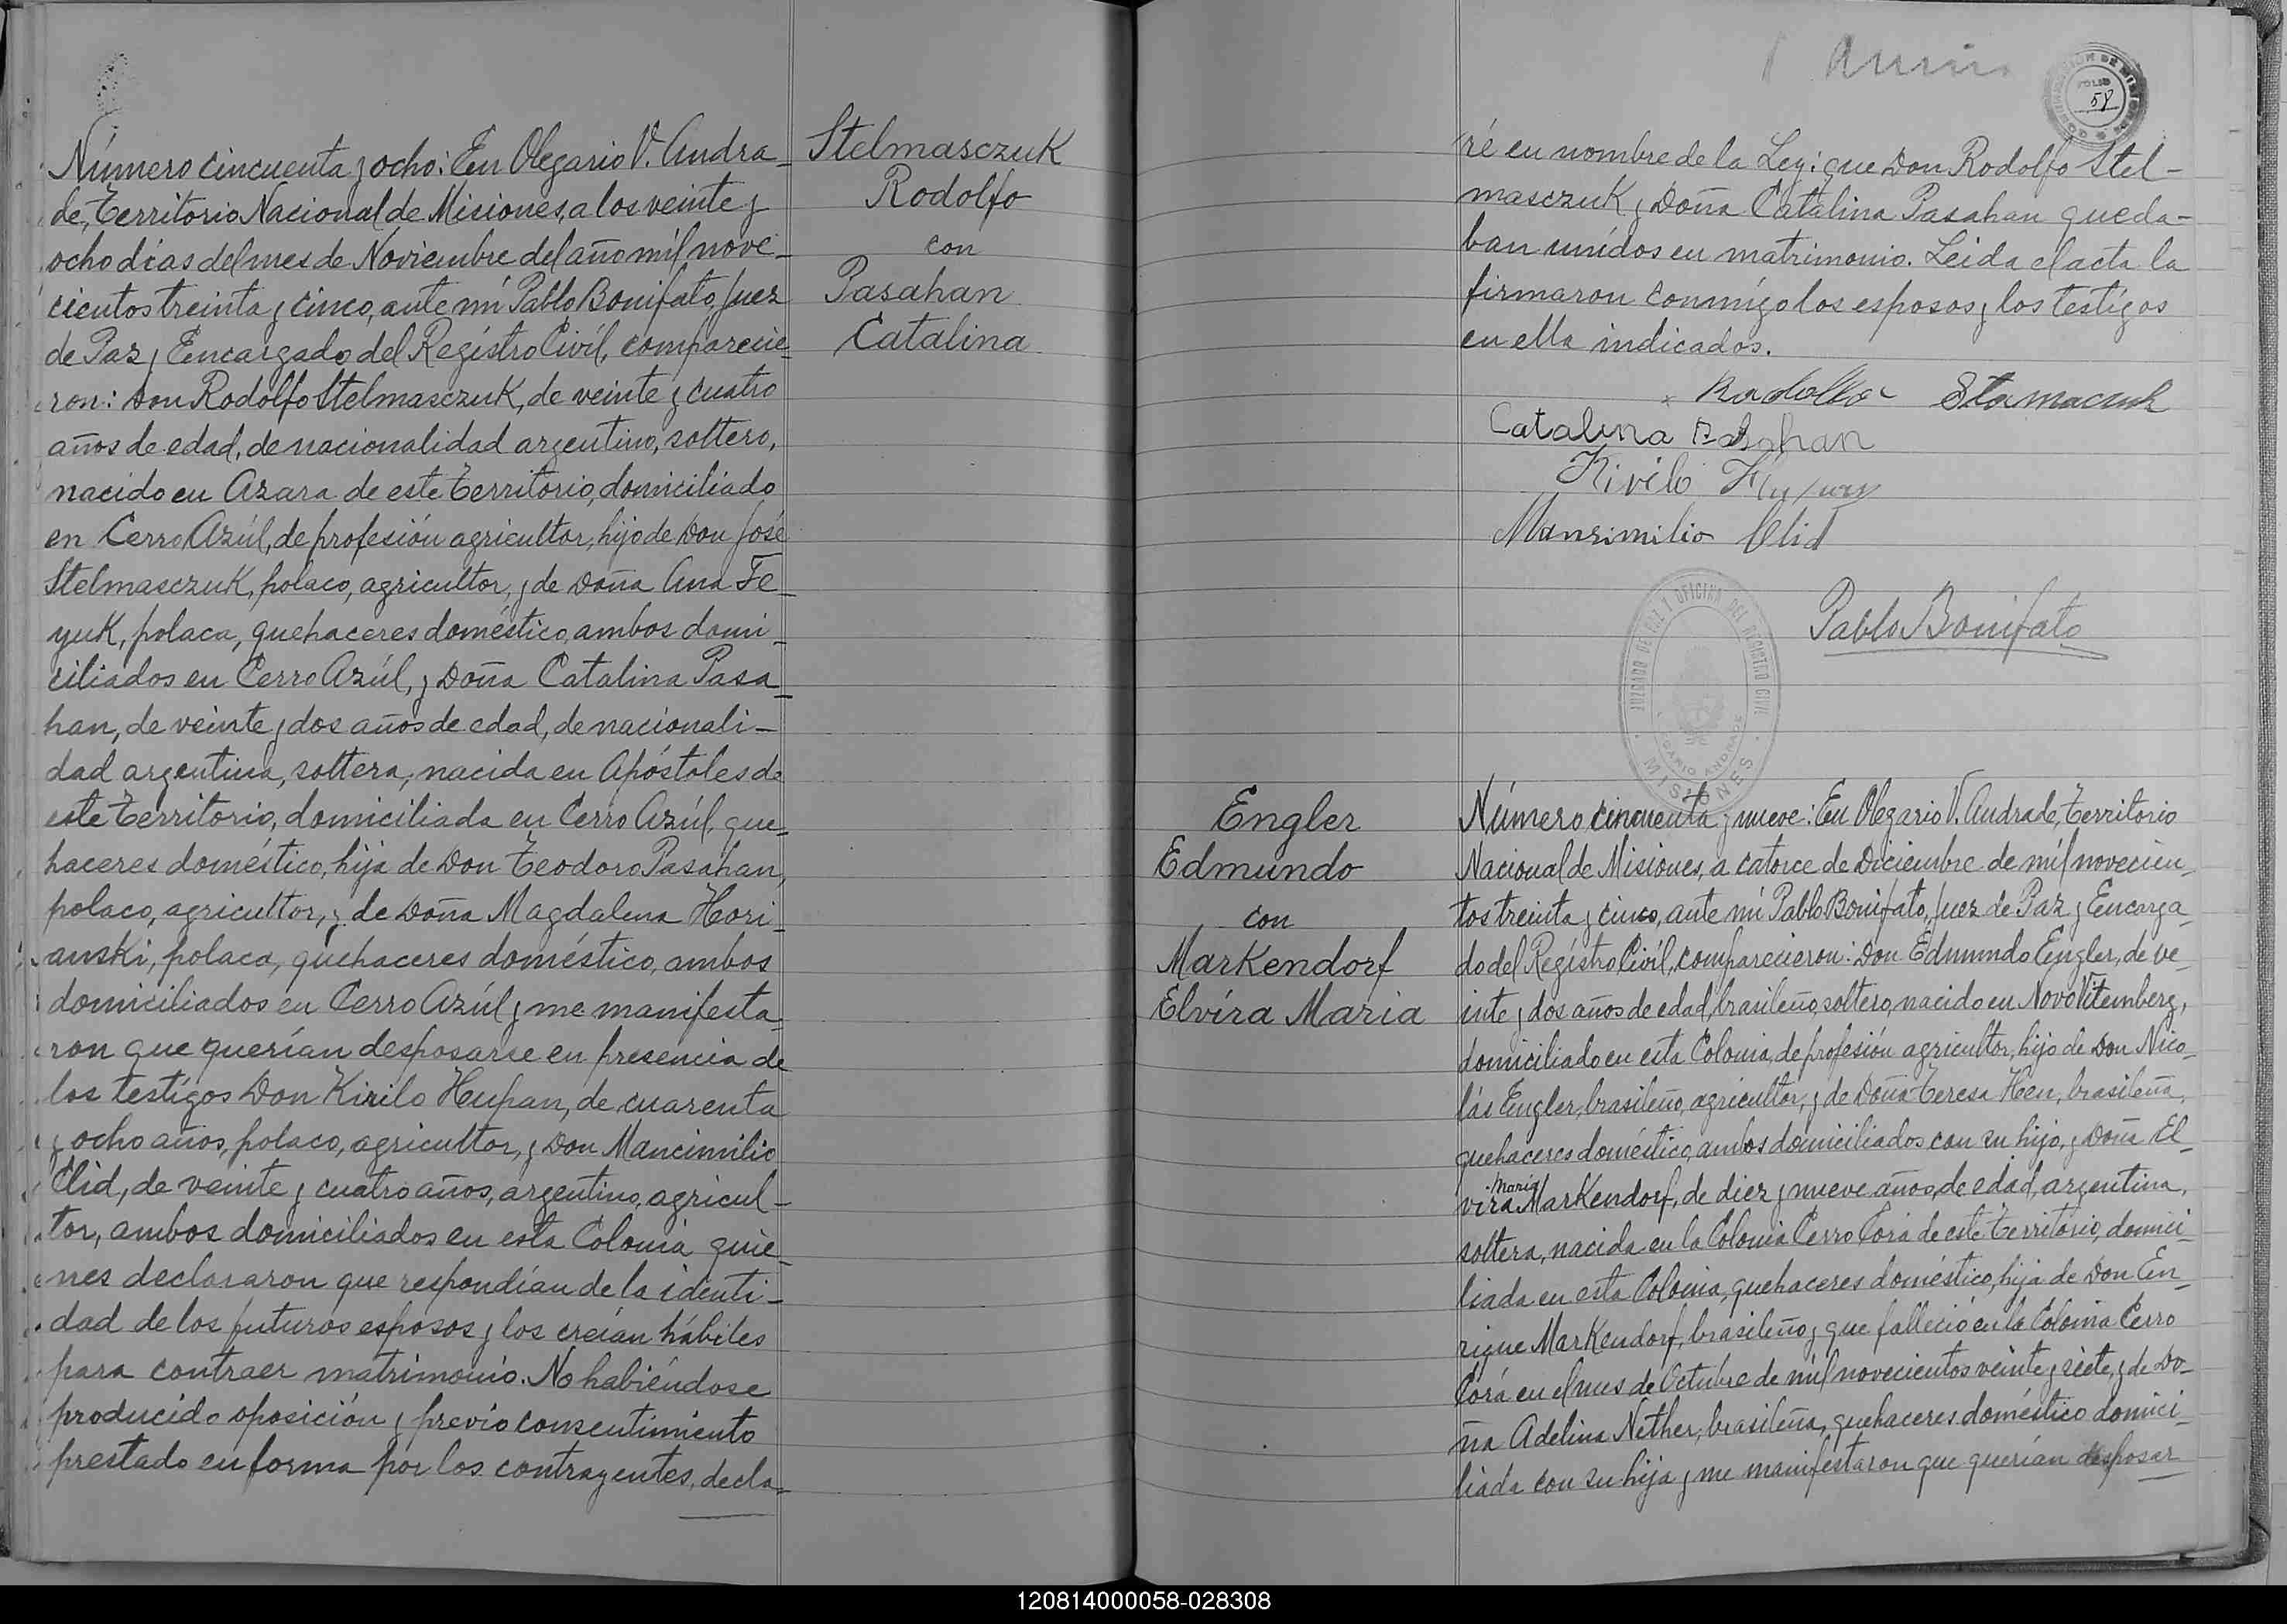 Número cincuenta y ocho: En Olegario V. Andra-
de, Territorio Nacional de Misiones, a los veinte y
ocho días del mes de Noviembre del año mil nove-
cientos treinta y cinco, ante mí Pablo Bonifato, Juez
de Paz y Encargado del Registro Civíl, comparecie-
ron: Don Rodolfo Stelmasczuk, de veinte y cuatro
años de edad, de nacionalidad argentino, soltero,
nacido en Azara de este Territorio, domiciliado
en Cerro Azúl, de profesión agricultor, hijo de Don José
Stelmasczuk, polaco, agricultor, y de Doña Ana Te-
yuk, polaca, quehaceres doméstico, ambos domi-
ciliados en Cerro Azúl, y Doña Catalina Pasa-
han, de veinte y dos años de edad, de nacionali-
dad argentina, soltera, nacida en Apóstoles de
este Territorio, domiciliada en Cerro Azúl, que-
haceres doméstico, hija de Don Teodoro Pasahan,
polaco, agricultor, y de Doña Magdalena Hori-
anski, polaca, quehaceres doméstico, ambos
domiciliados en Cerro Azúl y me manifesta-
ron que querían desposarse en presencia de
los testígos Don Kirilo Hupan, de cuarenta
y ocho años, polaco, agricultor, y Don Mancimilio
Olid, de veinte y cuatro años, argentino, agricul-
tor, ambos domiciliados en esta Colonia quie-
nes declararon que respondían de la identi-
dad de los futuros esposos y los creían hábiles
para contraer matrimonio. No habiéndose
producido oposición y previo consentimiento
prestado en forma por los contrayentes, decla-
Stelmasczuk
Rodolfo
con
Pasahan
Catalina
FOLIO
58
ré en nombre de la Ley: que Don Rodolfo Stel-
masczuk y Doña Catalina Pasahan queda-
ban unídos en matrimonio. Leida el acta la
firmaron conmígo los esposos y los testígos
en ella indicados.
Rodolfo Stamaczuk
Catalina Pasahan
Kirilo
Manximilio Olid
Pablo Bonifato
JUZGADO DE PAZ Y OFICINA DEL REGISTRO CIVIL
OLEGARIO ANDRADE
MISIONES
Engler
Edmundo
con
Markendorf
Elvíra Maria
Número cincuenta y nueve: En Olegario V. Andrade, Territorio
Nacional de Misiones, a catorce de Diciembre de míl novecien-
tos treinta y cinco, ante mí Pablo Bonifato, Juez de Paz y Encarga-
do del Registro Civíl, comparecieron: Don Edmundo Engler, de ve-
inte y dos años de edad, brasileño, soltero, nacido en Novo Vitemberg,
domiciliado en esta Colonia, de profesión agricultor, hijo de Don Nico-
lás Engler, brasileño, agricultor, y de Doña Teresa Hen, brasileña,
quehaceres doméstico, ambos domiciliados con su hijo, y Doña El-
vira Maria Markendorf, de diez y nueve años de edad, argentina,
soltera, nacida en la Colonia Cerro Corá de este Territorio, domici-
liada en esta Colonia, quehaceres doméstico, hija de Don En-
rique Markendorf, brasileño, que falleció en la Colonia Cerro
Corá en el mes de Octubre de mil novecientos veinte y siete, y de Do-
ña Adelina Nether, brasileña, quehaceres doméstico domici-
liada con su hija y me manifestaron que querían desposar
120814000058-028308